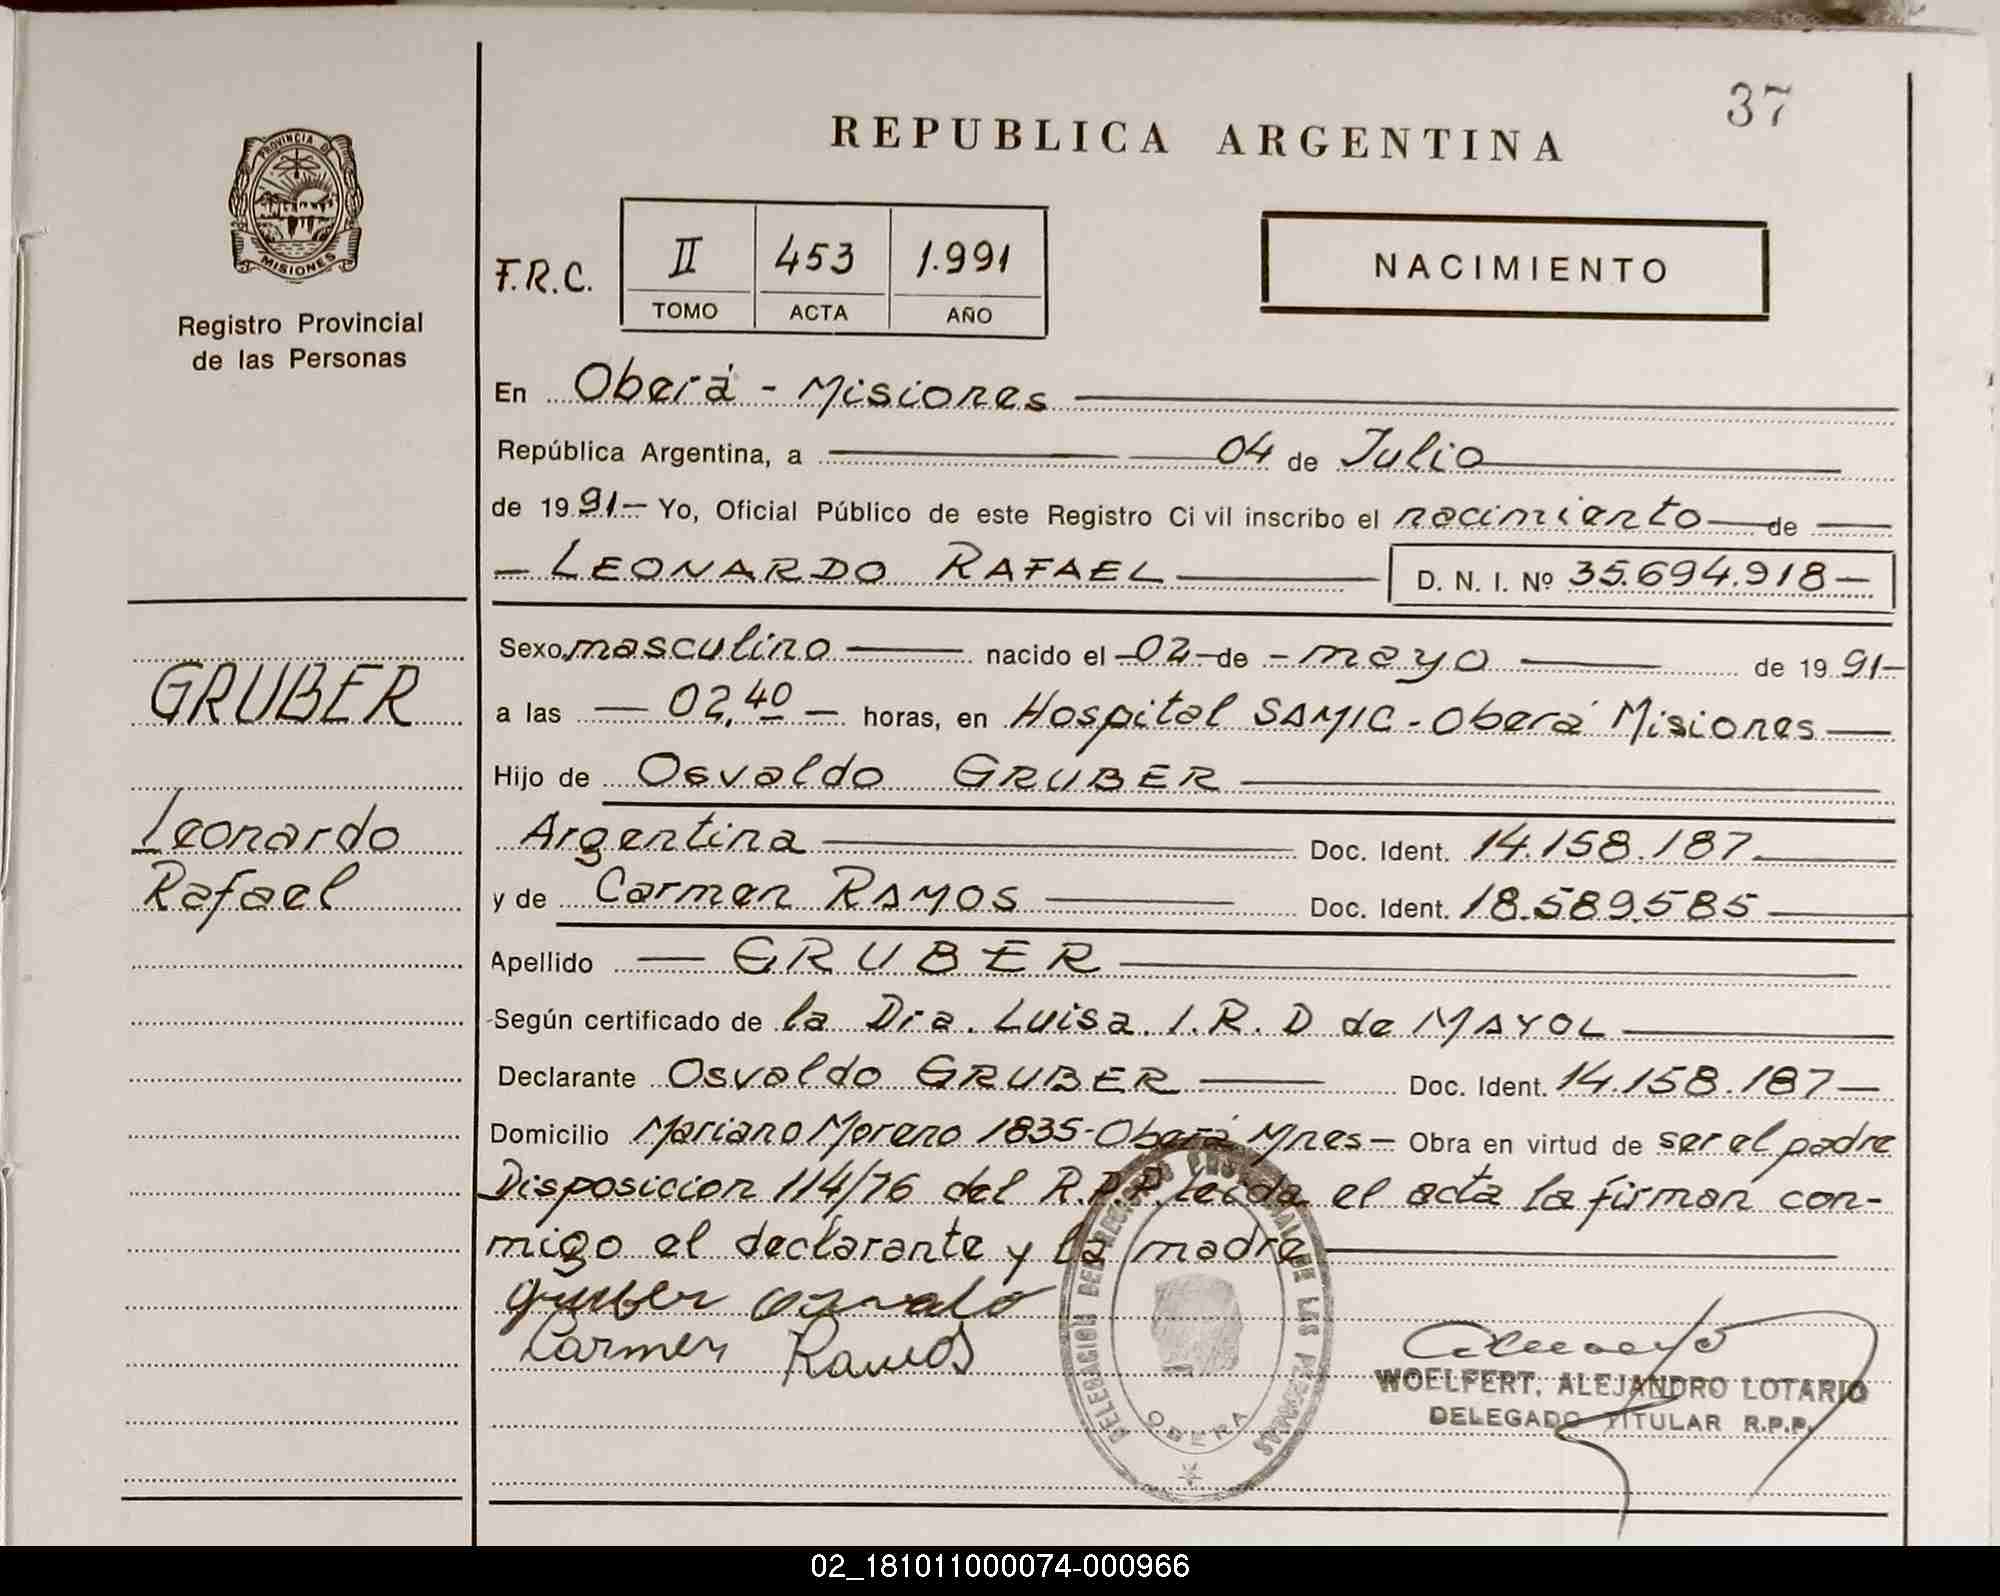 37
REPUBLICA ARGENTINA
PROVINCIA DE
MISIONES
Registro Provincial
de las Personas
F.R.C.
II 453 1.991
TOMO ACTA AÑO
NACIMIENTO
En Oberá - Misiones
República Argentina, a 04 de Julio
de 1991- Yo, Oficial Público de este Registro Ci vil inscribo el nacimiento de
- LEONARDO RAFAEL D. N. I. Nº 35.694.918-
GRUBER
Leonardo
Rafael
Sexo masculino nacido el -02- de - mayo de 1991-
a las - 02,40 - horas, en Hospital SAMIC - Oberá Misiones
Hijo de Osvaldo GRUBER
Argentina Doc. Ident. 14.158.187
y de Carmen RAMOS Doc. Ident. 18.589.585
Apellido - GRUBER
-Según certificado de la Dra. Luisa. I. R. D de MAYOL
Declarante Osvaldo GRUBER Doc. Ident. 14.158.187-
Domicilio Mariano Moreno 1835-Oberá Mnes- Obra en virtud de ser el padre
Disposicion 114/76 del R.P.P. leida el acta la firman con-
migo el declarante y la madre
gruber osvaldo
Carmen Ramos
DELEGACION DEL REGISTRO PROVINCIAL DE LAS PERSONAS
OBERA
WOELFERT, ALEJANDRO LOTARIO
DELEGADO TITULAR R.P.P.
02_181011000074-000966